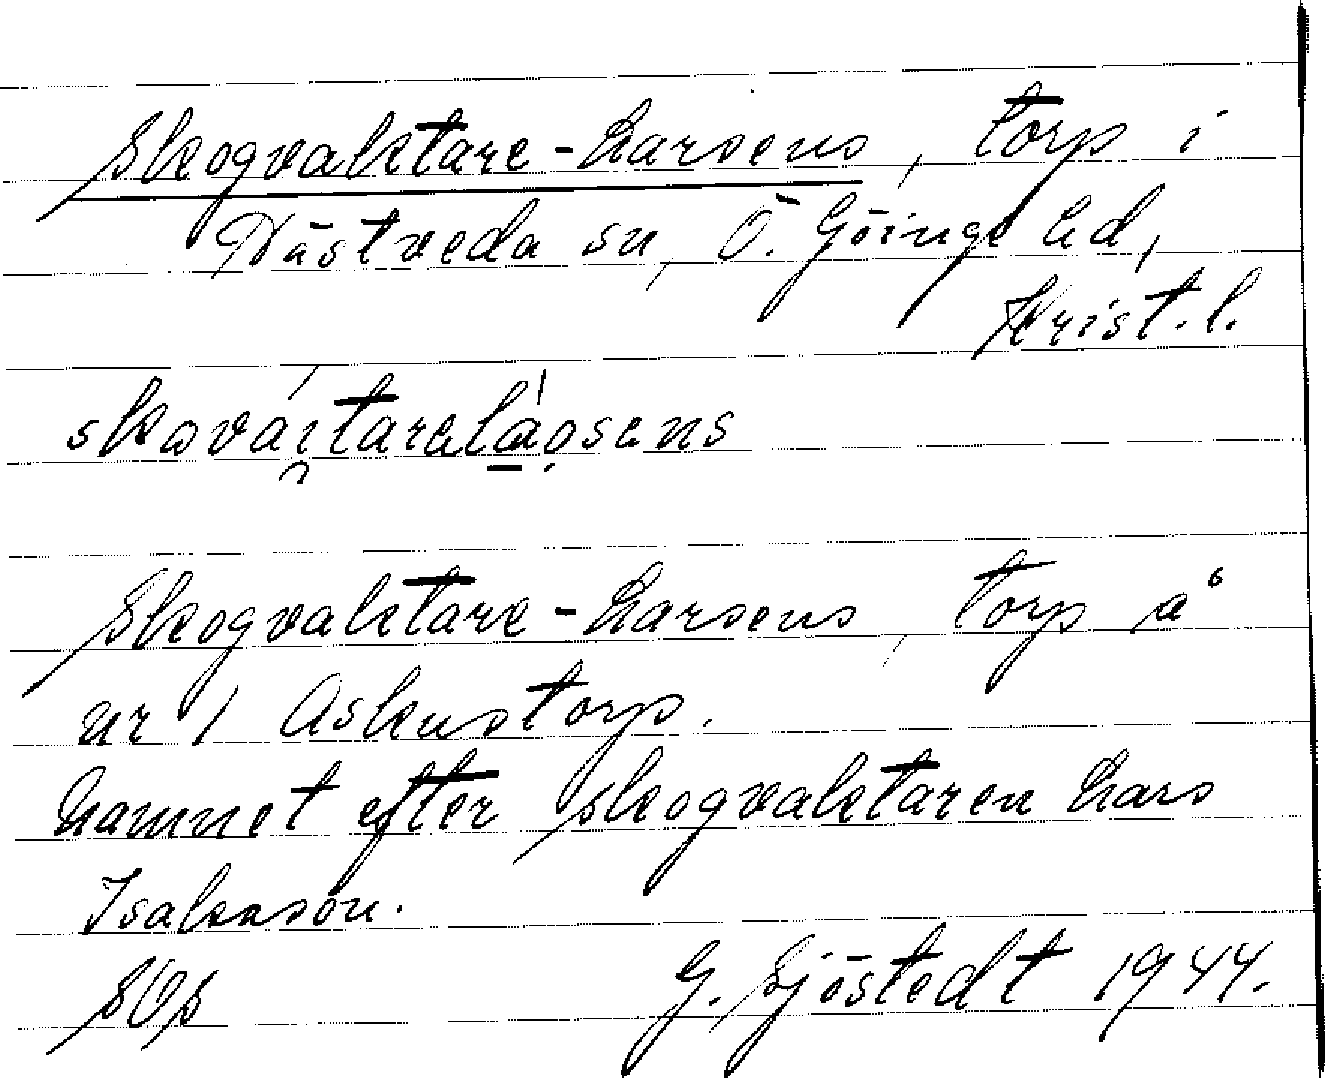 Skogvaktare-Larsens, torp i
Västveda sn, Ö. Göinge hd,
Krist. l.
Skogvaktare-Larsens, torp å
nr 1 Askenstorp.
Namnet efter skogvaktaren Lars
Isaksson.
SOS G. Sjöstedt 1944.